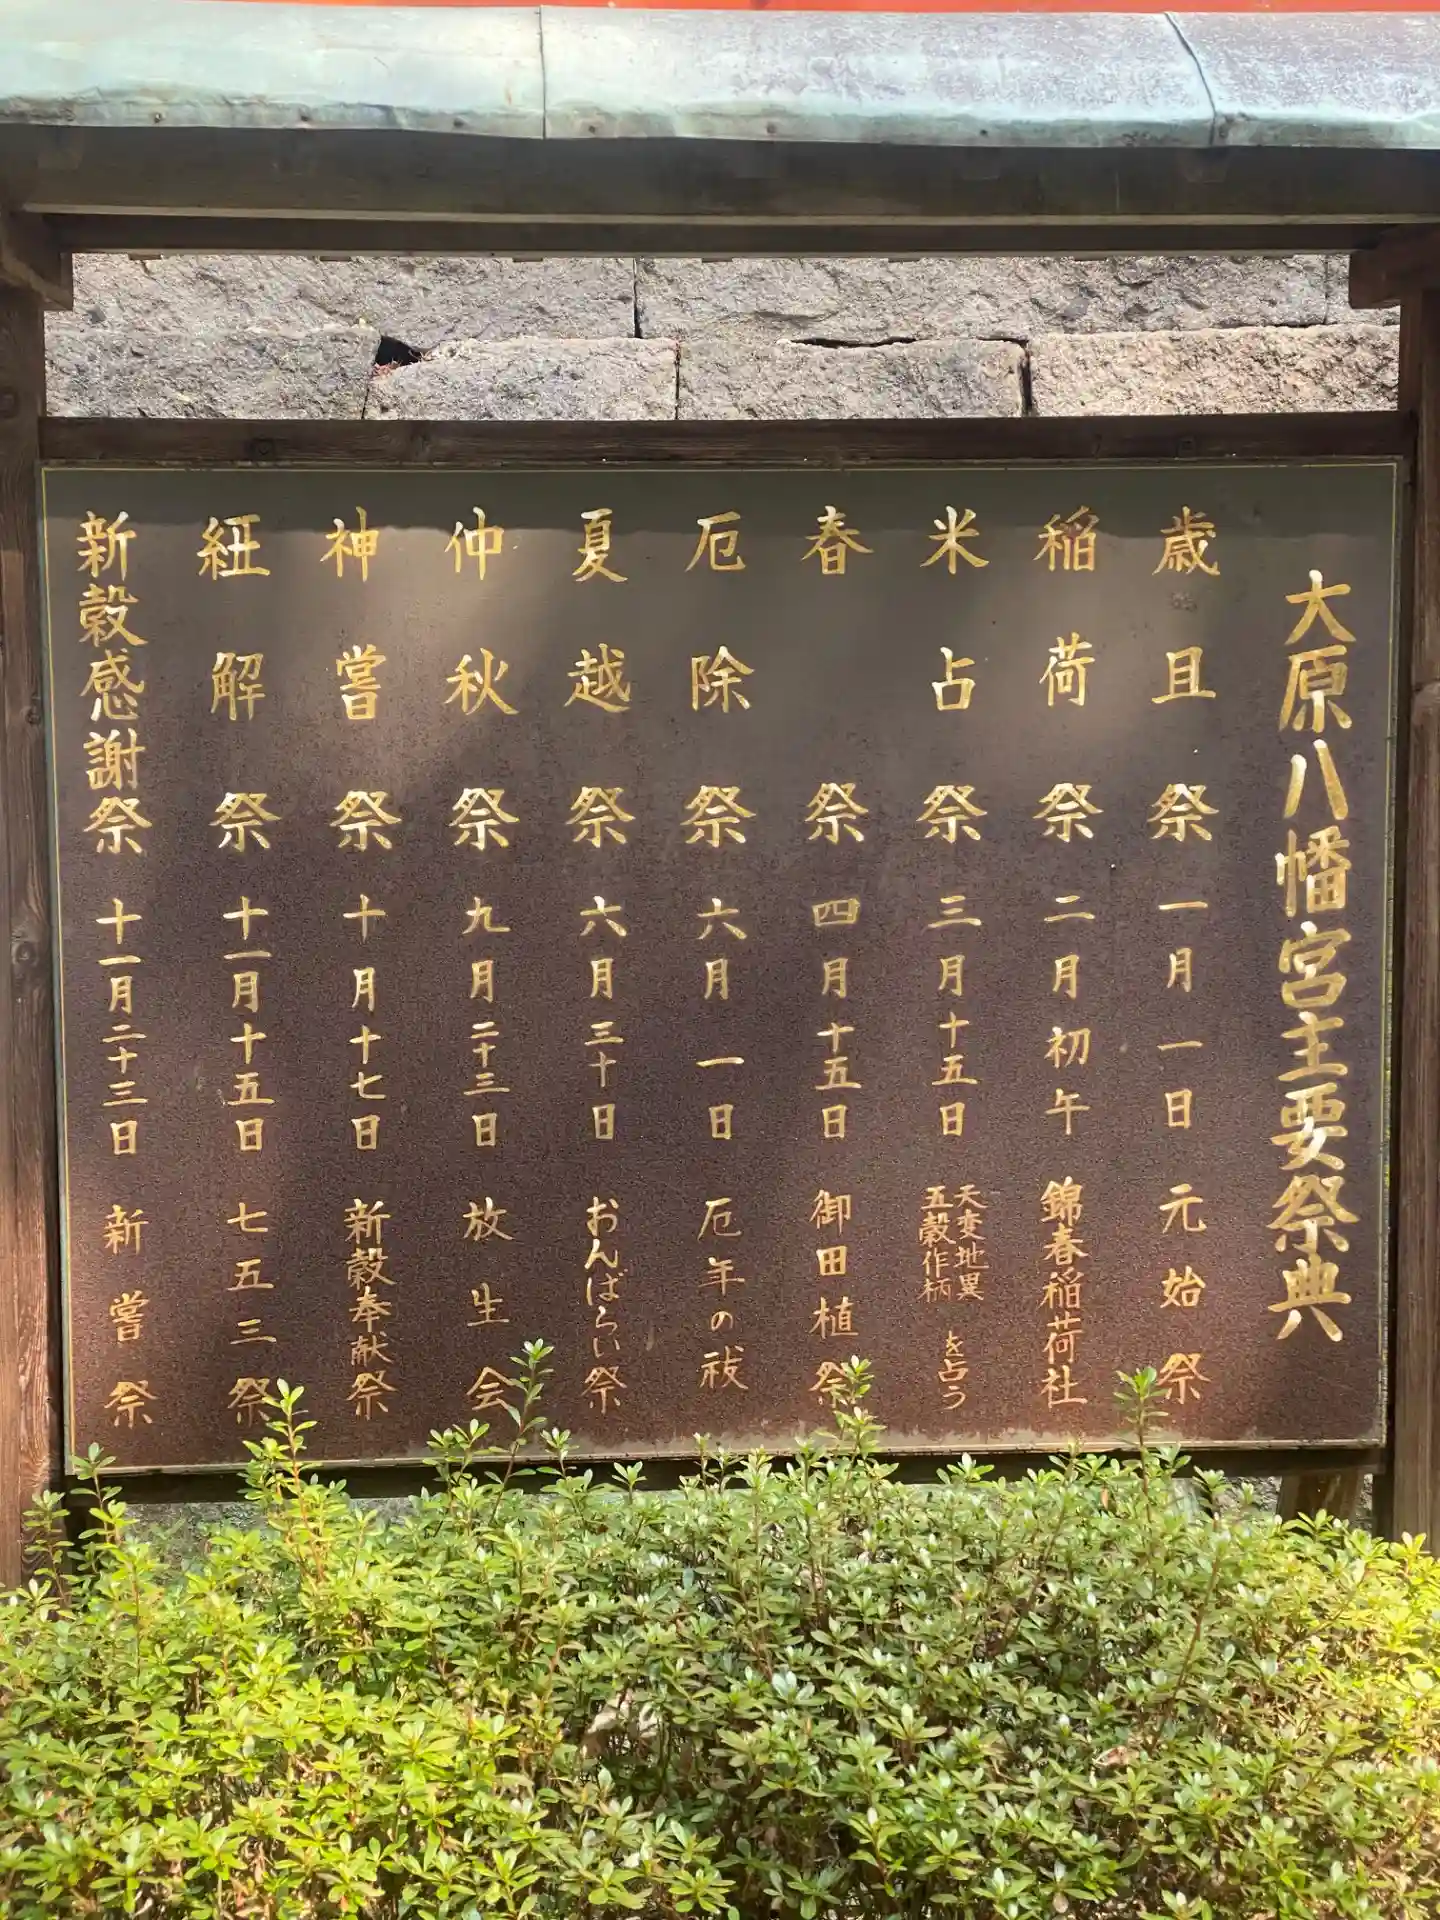 大原八幡宮主要祭典
歳旦祭 一月一日 元始祭
稲荷祭 二月初午 錦春稲荷社
米占祭 三月十五日 天変地異五穀作柄を占う
春祭 四月十五日 御田植祭
厄除祭 六月一日 厄年の祓
夏越祭 六月三十日 おんばらい祭
仲秋祭 九月二十三日 放生会
神嘗祭 十月十七日 新穀奉献祭
紐解祭 十一月十五日 七五三祭
新穀感謝祭 十一月二十三日 新嘗祭